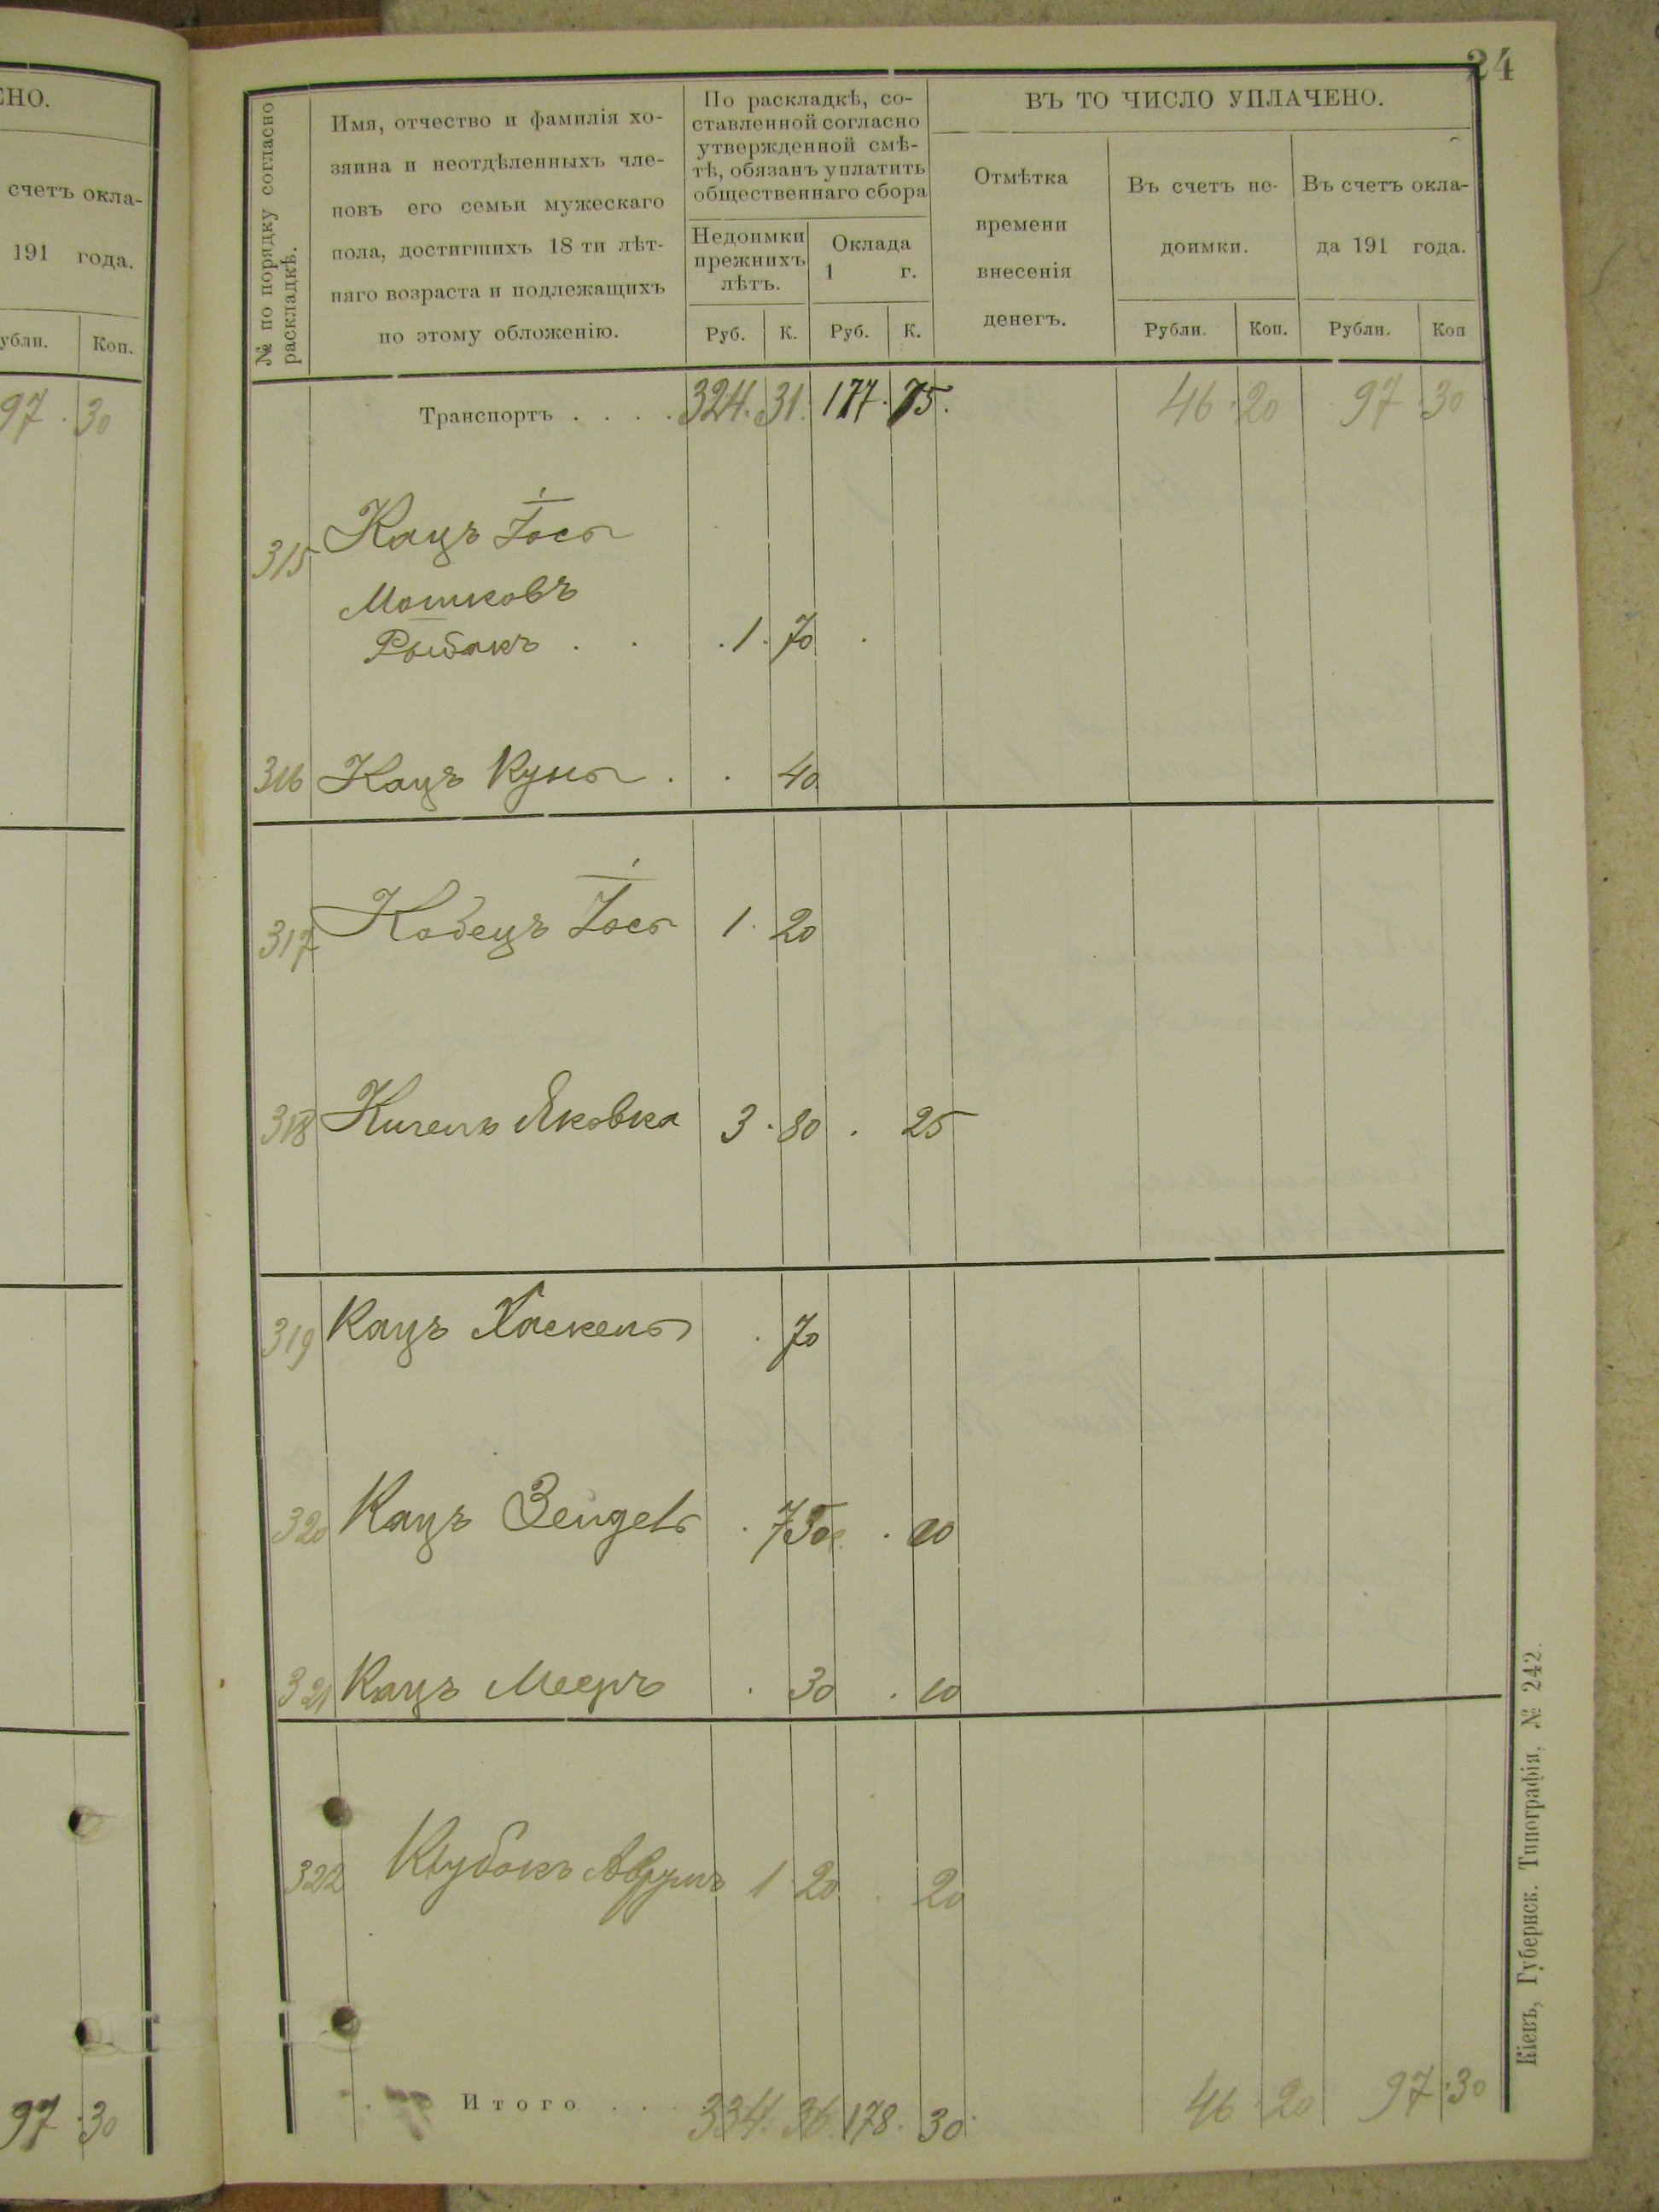 ЕНО.
счетъ окла-
191 года.
убли. Коп.
97 . 30
97 . 30
24
№ по порядку согласно
раскладкѣ.
Имя, отчество и фамилія хо-
зяина и неотдѣленныхъ чле-
новъ его семьи мужескаго
пола, достигшихъ 18 ти лѣт-
няго возраста и подлежащихъ
по этому обложенію.
По раскладкѣ, со-
ставленной согласно
утвержденной смѣ-
тѣ, обязанъ уплатить
общественнаго сбора
Недоимки
прежнихъ
лѣтъ.
Оклада
1 г.
Руб. К. Руб. К.
ВЪ ТО ЧИСЛО УПЛАЧЕНО.
Отмѣтка
времени
внесенія
денегъ.
Въ счетъ не-
доимки.
Въ счетъ окла-
да 191 года.
Рубли. Коп. Рубли. Коп
Транспортъ . . . . 324. 31. 177. 75. 46 . 20 97 . 30
315 Кацъ Іось
Мошковъ
Рыбакъ . . . 1. 70 .
316 Кацъ Кунь . . 40
317 Кобецъ Іось 1. 20
318 Кигель Яковка 3 . 80 . 25
319 Кацъ Хаскель . 70
320 Кацъ Зейдель . . 10
321 Кацъ Мееръ . 30 . 10
322 Клубокъ Аврумъ 1 20 . 20
Итого . . . 334. 36. 178. 30. 46 . 20 97 . 30
Кіевъ, Губернск. Типографія, № 242.